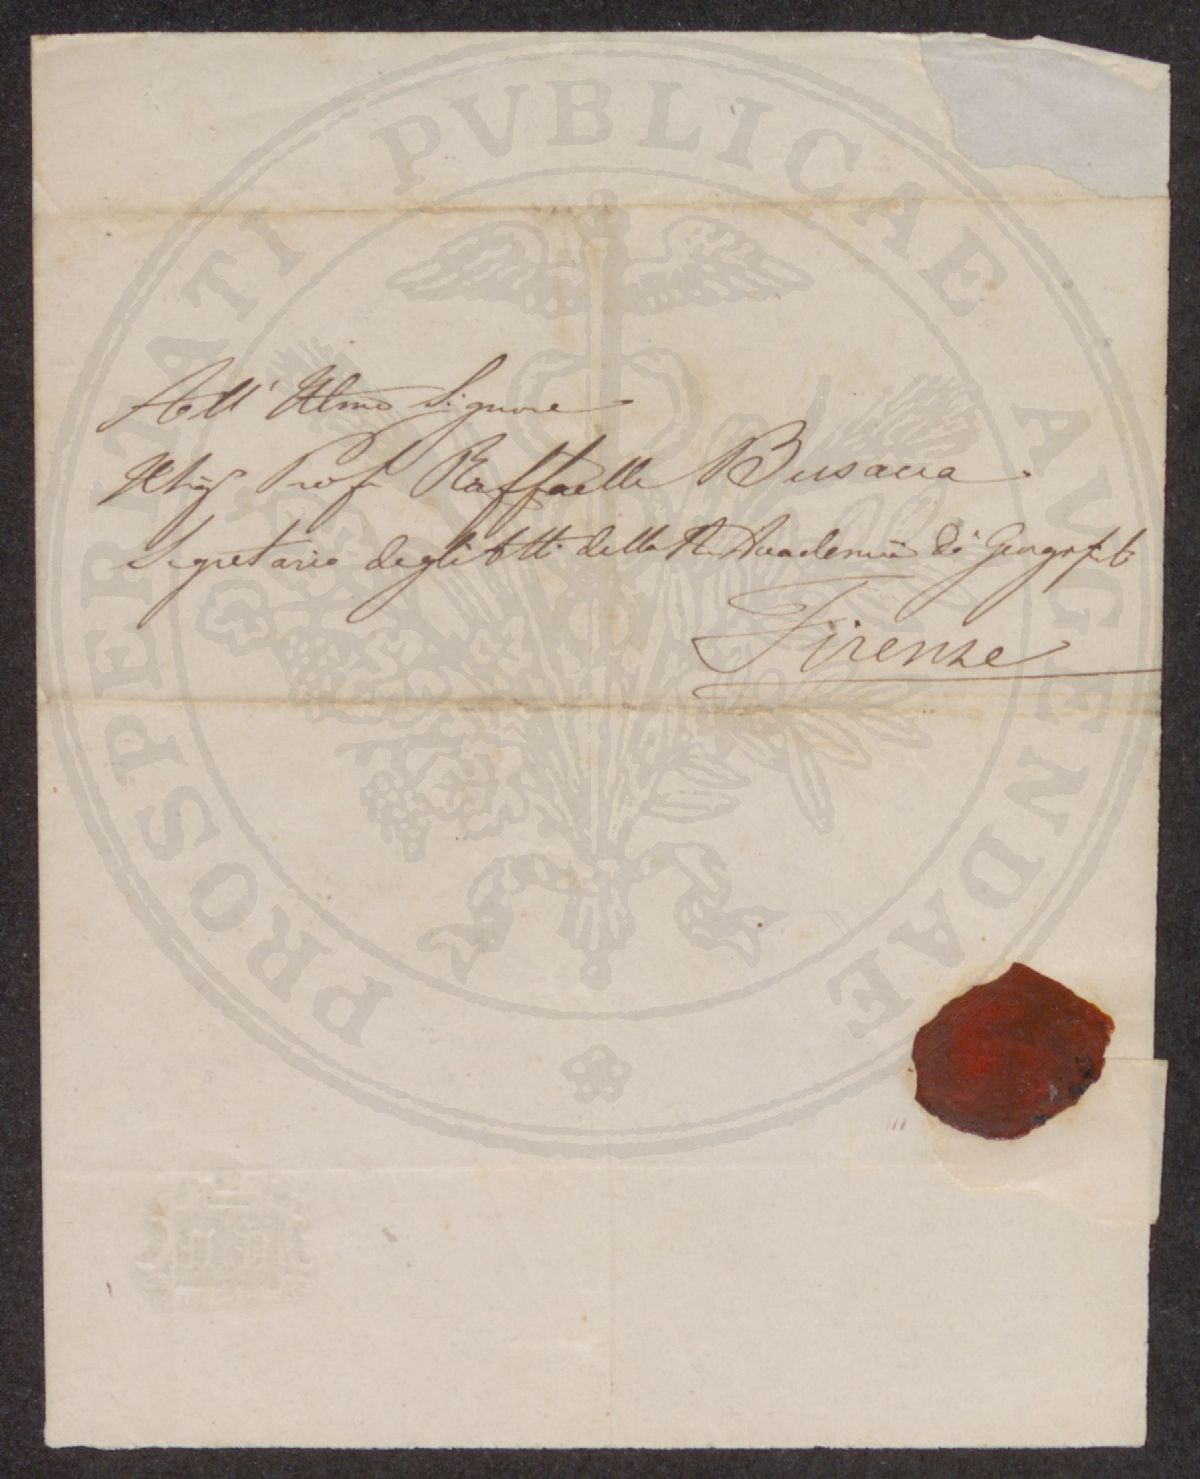 PROSPERITATI PVBLICAE AVGENDAE
All' Illmo Signore
Prof Raffaelle Busacca
Segretario degli Atti della R. Accademia di Georgofili
Firenze